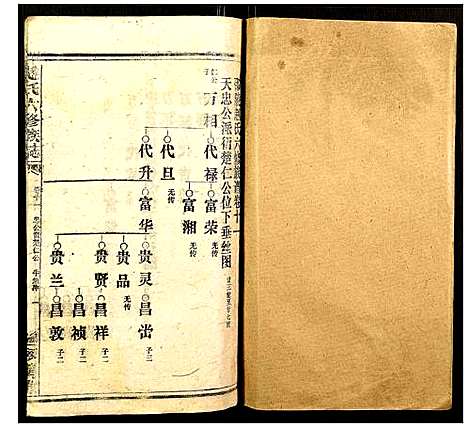 天忠公派衍楚仁公位下垂丝图
仁公子
万相
代禄
富荣
无传
富湘
无传
代旦
无传
代升
富华
贵灵
昌峕
子三
贵品
无传
贵贤
昌祥
子二
昌祯
子二
贵兰
昌敦
子二
氏六修族志